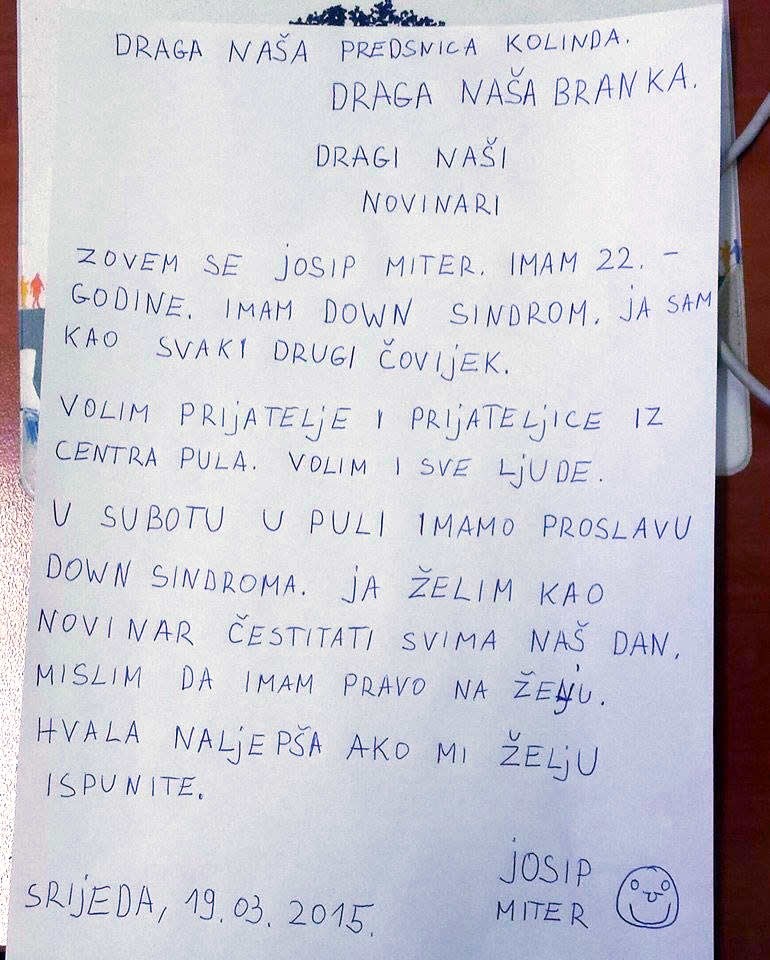 DRAGA NAŠA PREDSNICA KOLINDA.
DRAGA NAŠA BRANKA.
DRAGI NAŠI
NOVINARI
ZOVEM SE JOSIP MITER. IMAM 22. -
GODINE. IMAM DOWN SINDROM. JA SAM
KAO SVAKI DRUGI ČOVIJEK.
VOLIM PRIJATELJE I PRIJATELJICE IZ
CENTRA PULA. VOLIM I SVE LJUDE.
U SUBOTU U PULI IMAMO PROSLAVU
DOWN SINDROMA. JA ŽELIM KAO
NOVINAR ČESTITATI SVIMA NAŠ DAN.
MISLIM DA IMAM PRAVO NA
HVALA NALJEPŠA AKO MI ŽELJU
ISPUNITE.
JOSIP
MITER
SRIJEDA, 19.03. 2015.